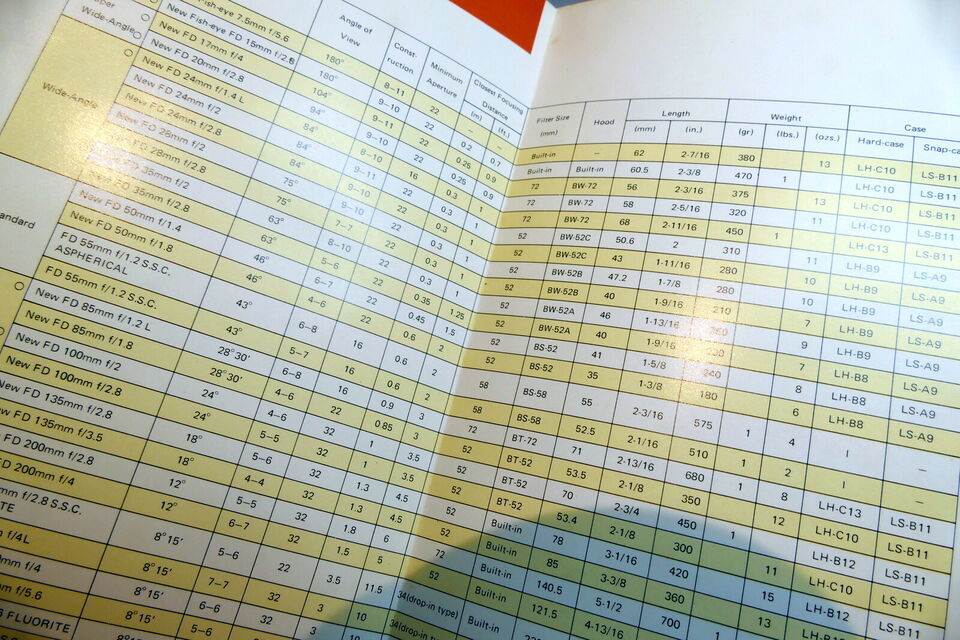 Wide-Angle
Wide-Angle
Angle of View
Construction
Minimum Aperture
Closest Focusing Distance
(m) (ft.)
Fish-eye 7.5mm f/5.6 180° 8–11 22 – –
New Fish-eye FD 15mm f/2.8 180° 9–10 22 0.2 0.7
New FD 17mm f/4 104° 9–11 22 0.25 0.9
New FD 20mm f/2.8 94° 9–10 22 0.25 0.9
New FD 24mm f/1.4 L 84° 8–10 16 0.3 1
New FD 24mm f/2 84° 9–11 22 0.3 1
New FD 24mm f/2.8 84° 9–10 22 0.3 1
New FD 28mm f/2 75° 9–10 22 0.3 1
New FD 28mm f/2.8 75° 7–7 22 0.3 1
New FD 35mm f/2 63° 8–10 22 0.3 1
New FD 35mm f/2.8 63° 5–6 22 0.35 1.25
New FD 50mm f/1.4 46° 6–7 22 0.45 1.5
New FD 50mm f/1.8 46° 4–6 22 0.6 2
FD 55mm f/1.2 S.S.C. ASPHERICAL 43° 6–8 16 0.6 2
FD 55mm f/1.2 S.S.C. 43° 5–7 16 0.6 2
New FD 85mm f/1.2 L 28°30' 6–8 16 0.9 3
New FD 85mm f/1.8 28°30' 4–6 22 0.85 3
New FD 100mm f/2 24° 4–6 32 1 3.5
New FD 100mm f/2.8 24° 5–5 32 1 3.5
New FD 135mm f/2.8 18° 5–6 32 1.3 4.5
FD 135mm f/3.5 18° 4–4 32 1.3 4.5
FD 200mm f/2.8 12° 5–5 32 1.8 6
FD 200mm f/4 12° 6–7 32 1.5 5
f/2.8 S.S.C. 8°15' 5–6 22 3.5 11.5
f/4L 8°15' 7–7 32 3 10
f/4 8°15' 6–6
f/5.6 8°15' 5–6
FLUORITE
Filter Size (mm) Hood Length Weight Case
(mm) (in.) (gr) (lbs.) (ozs.) Hard-case
Built-in 62 2-7/16 380 13 LH-C10 LS-B11
Built-in Built-in 60.5 2-3/8 470 1 LH-C10 LS-B11
72 BW-72 56 2-3/16 375 13 LH-C10 LS-B11
72 BW-72 58 2-5/16 320 11 LH-C10 LS-B11
72 BW-72 68 2-11/16 450 1 LH-C13 LS-B11
52 BW-52C 50.6 2 310 11 LH-B9 LS-A9
52 BW-52C 43 1-11/16 280 10 LH-B9 LS-A9
52 BW-52B 47.2 1-7/8 280 10 LH-B9 LS-A9
52 BW-52B 40 1-9/16 210 7 LH-B9 LS-A9
52 BW-52A 46 1-13/16 9 LH-B8 LS-A9
52 BW-52A 40 1-9/16 7 LH-B8 LS-A9
52 BS-52 41 1-5/8 240 8 LH-B8 LS-A9
52 BS-52 35 1-3/8 180 6
58 BS-58 55 2-3/16 575 1 4
58 BS-58 52.5 2-1/16 510 1 2
72 BT-72 71 2-13/16 680 1 8 LH-C13 LS-B11
52 BT-52 53.5 2-1/8 350 12 LH-C10 LS-B11
52 BT-52 70 2-3/4 450 1 LH-B12 LS-B11
52 Built-in 53.4 2-1/8 300 11 LH-C10 LS-B11
52 Built-in 78 3-1/16 420 15 LH-B12 LS-B11
Built-in 85 3-3/8 360 13
72 Built-in 140.5 5-1/2 700 1
52 Built-in 121.5 4-13/16
34(drop-in type)
34(drop-in type)